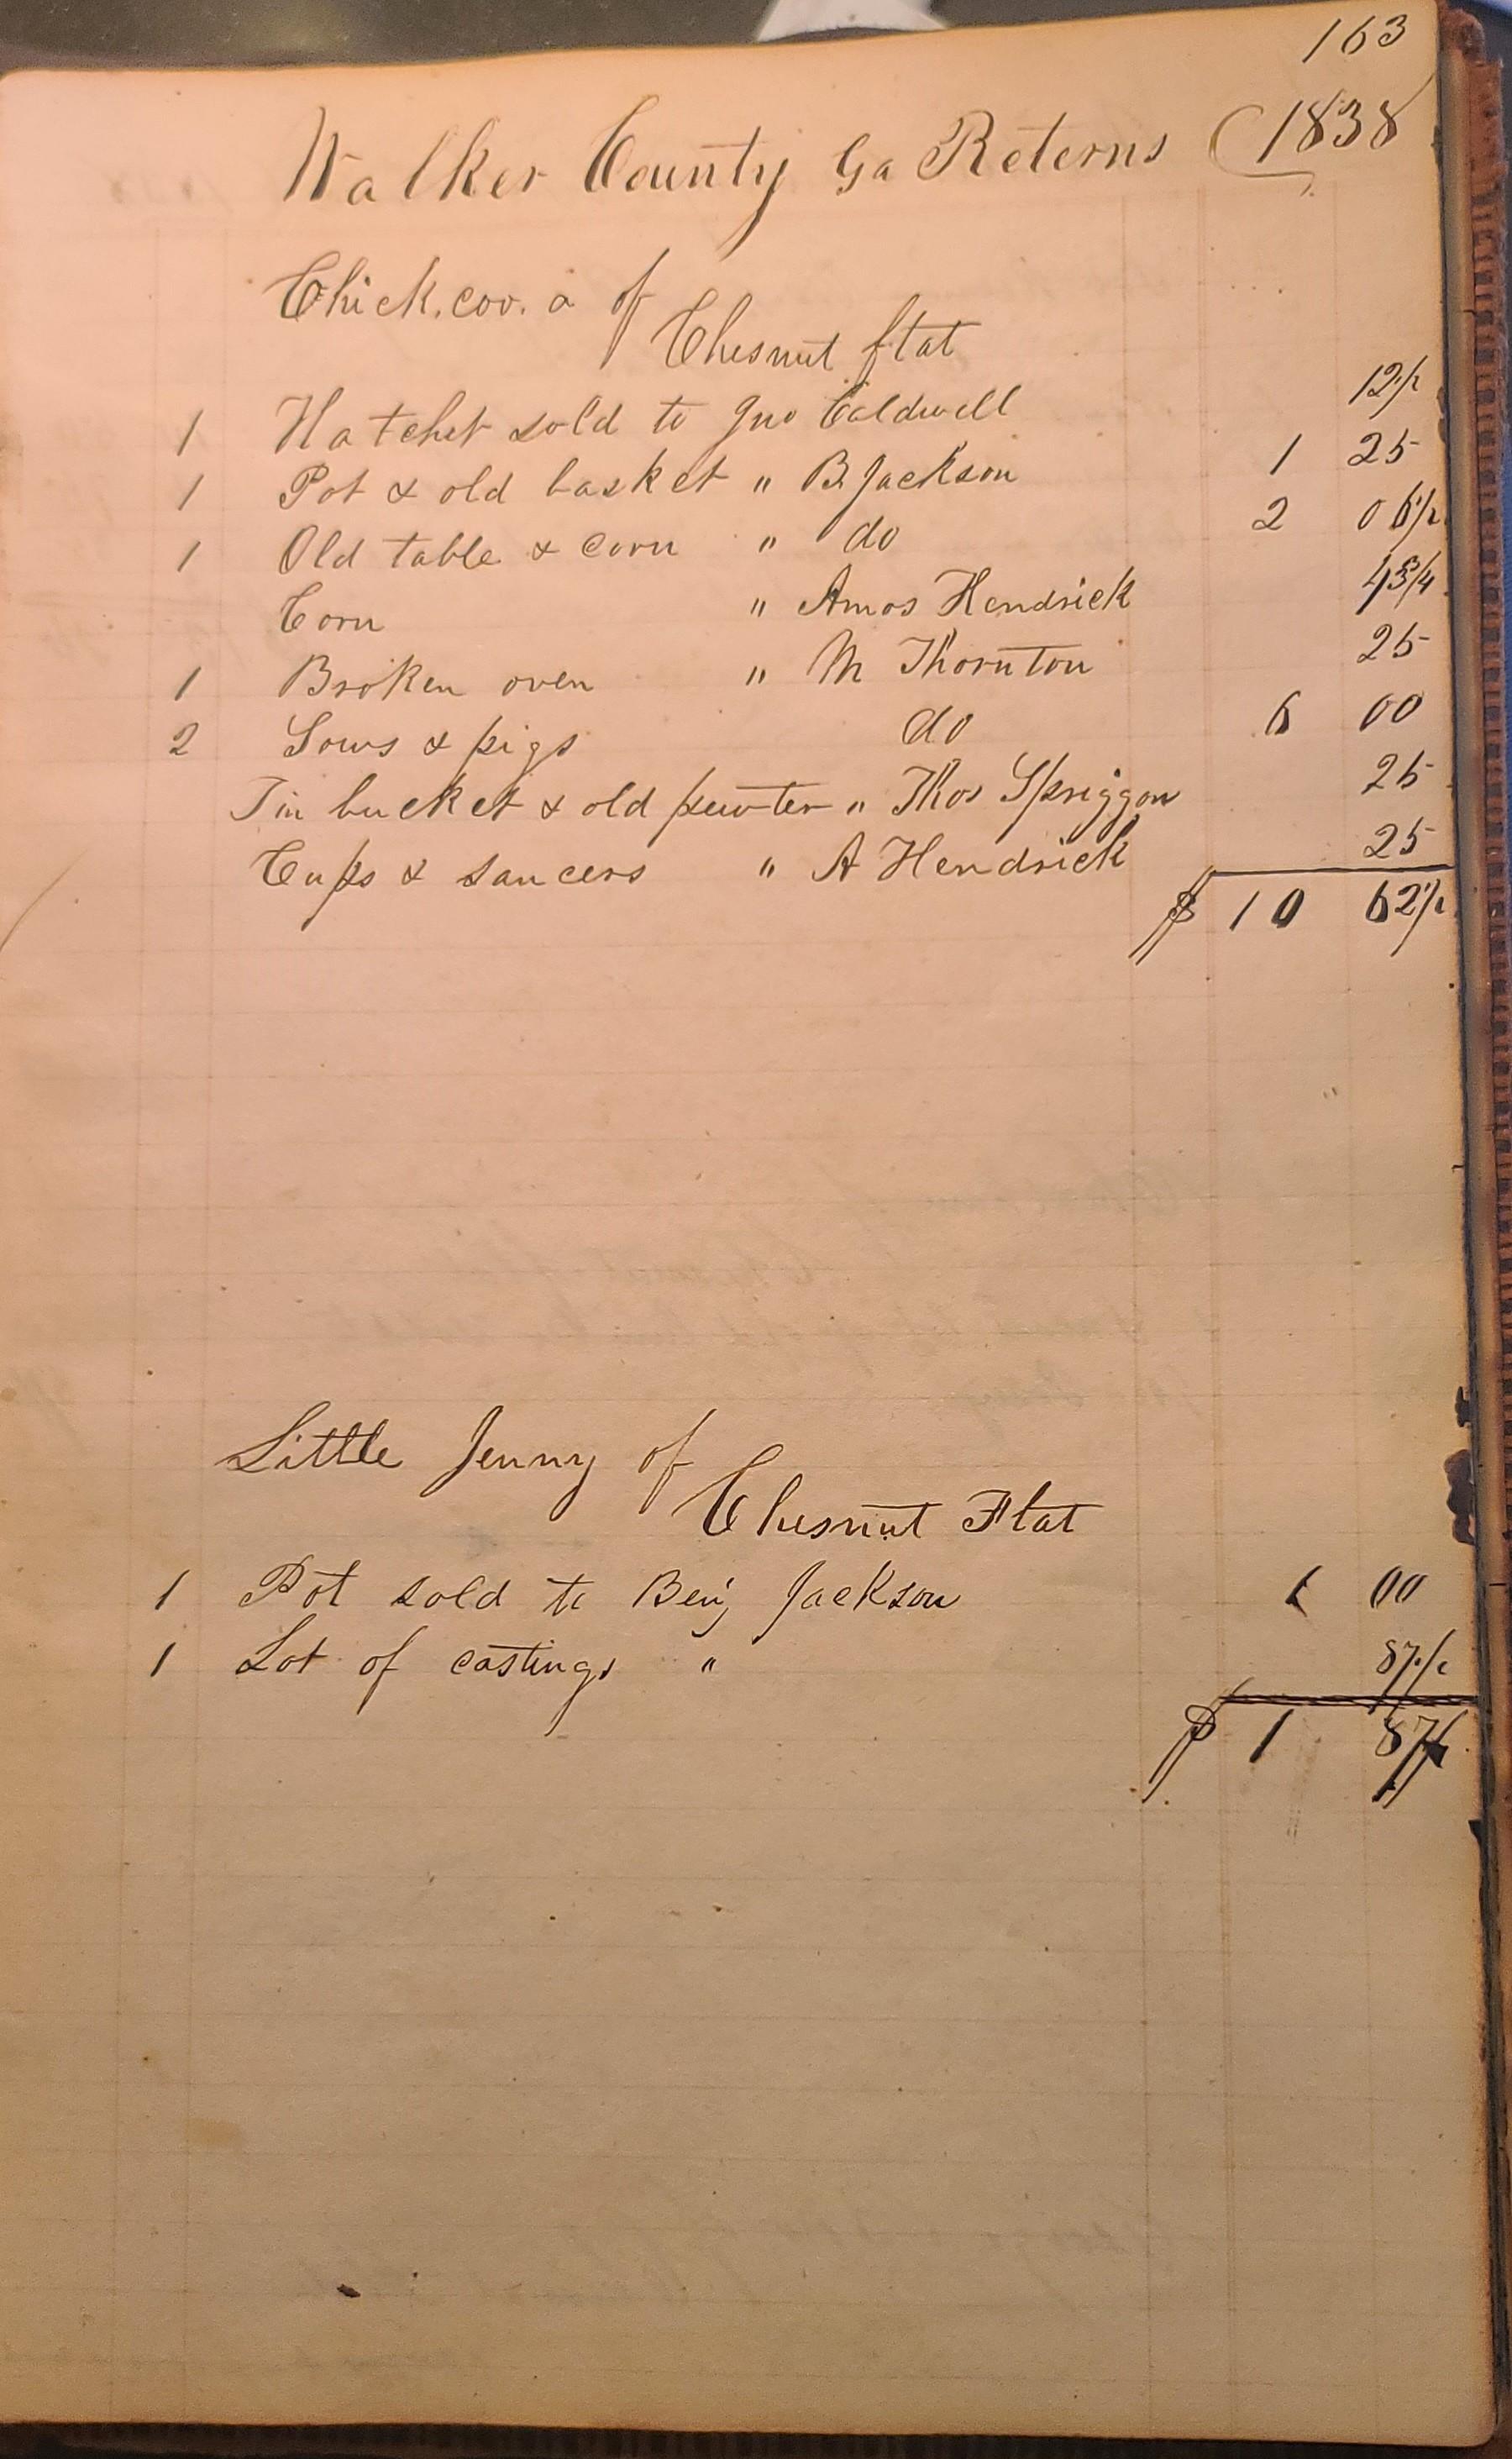 163
Walker County Ga Reterns 1838
Chick.coo.a of
Chesnut flat
1 Hatchet sold to Jno Caldwell 12 1/2
1 Pot & old basket " B. Jackson 1 25
1 Old table & corn " do 2 06 1/2
Corn " Amos Hendrick 43 3/4
1 Broken oven " M Thornton 25
2 Sows & pigs do 6 00
Tin bucket & old pewter " Thos Spriggon 25
Cups & saucers " A Hendrick 25
$ 10 62 1/2
Little Jenny of
Chesnut Flat
1 Pot sold to Benj Jackson 1 00
1 Lot of castings " 87 1/2
$ 1 87 1/2